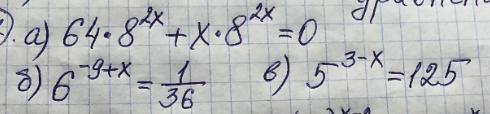 а) 64·8^{2x} + x·8^{2x} = 0
б) 6^{-9+x} = \frac{1}{36} в) 5^{3-x} = 125